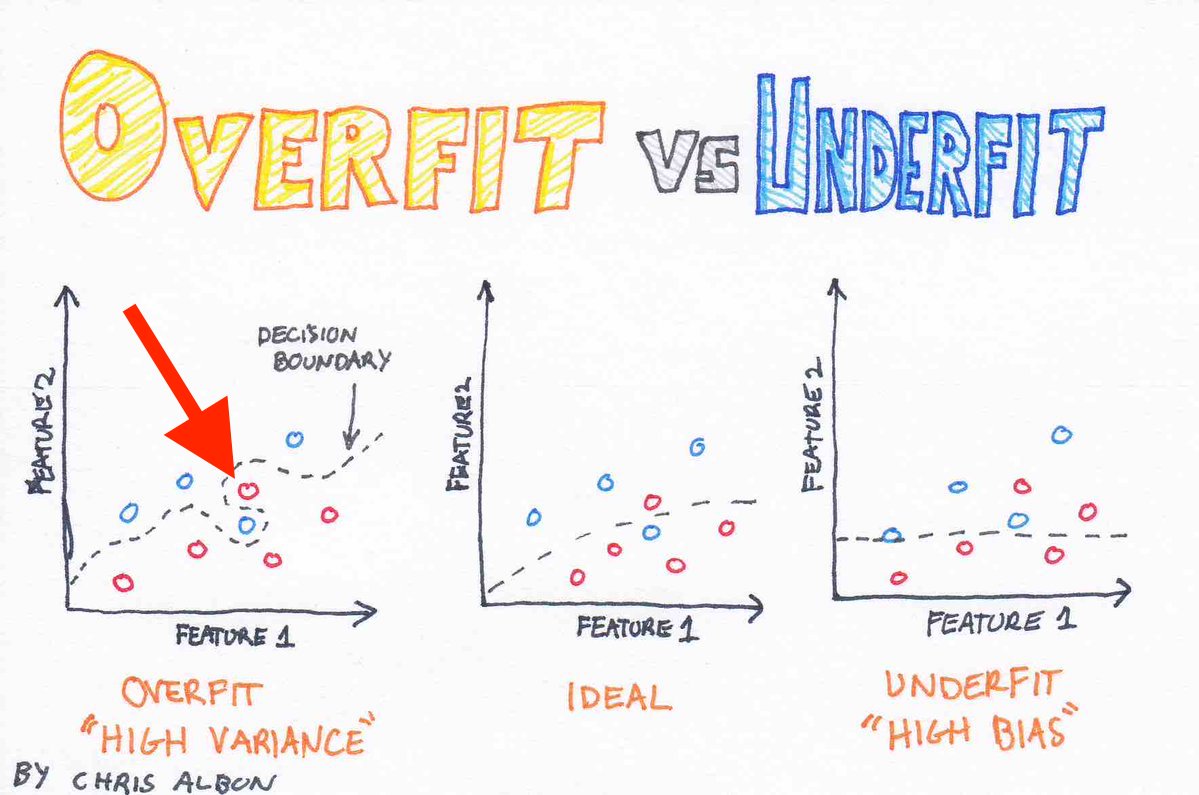 OVERFIT VS UNDERFIT
DECISION
BOUNDARY
FEATURE 2
FEATURE 1
OVERFIT
"HIGH VARIANCE"
FEATURE 2
FEATURE 1
IDEAL
FEATURE 2
FEATURE 1
UNDERFIT
"HIGH BIAS"
BY CHRIS ALBON